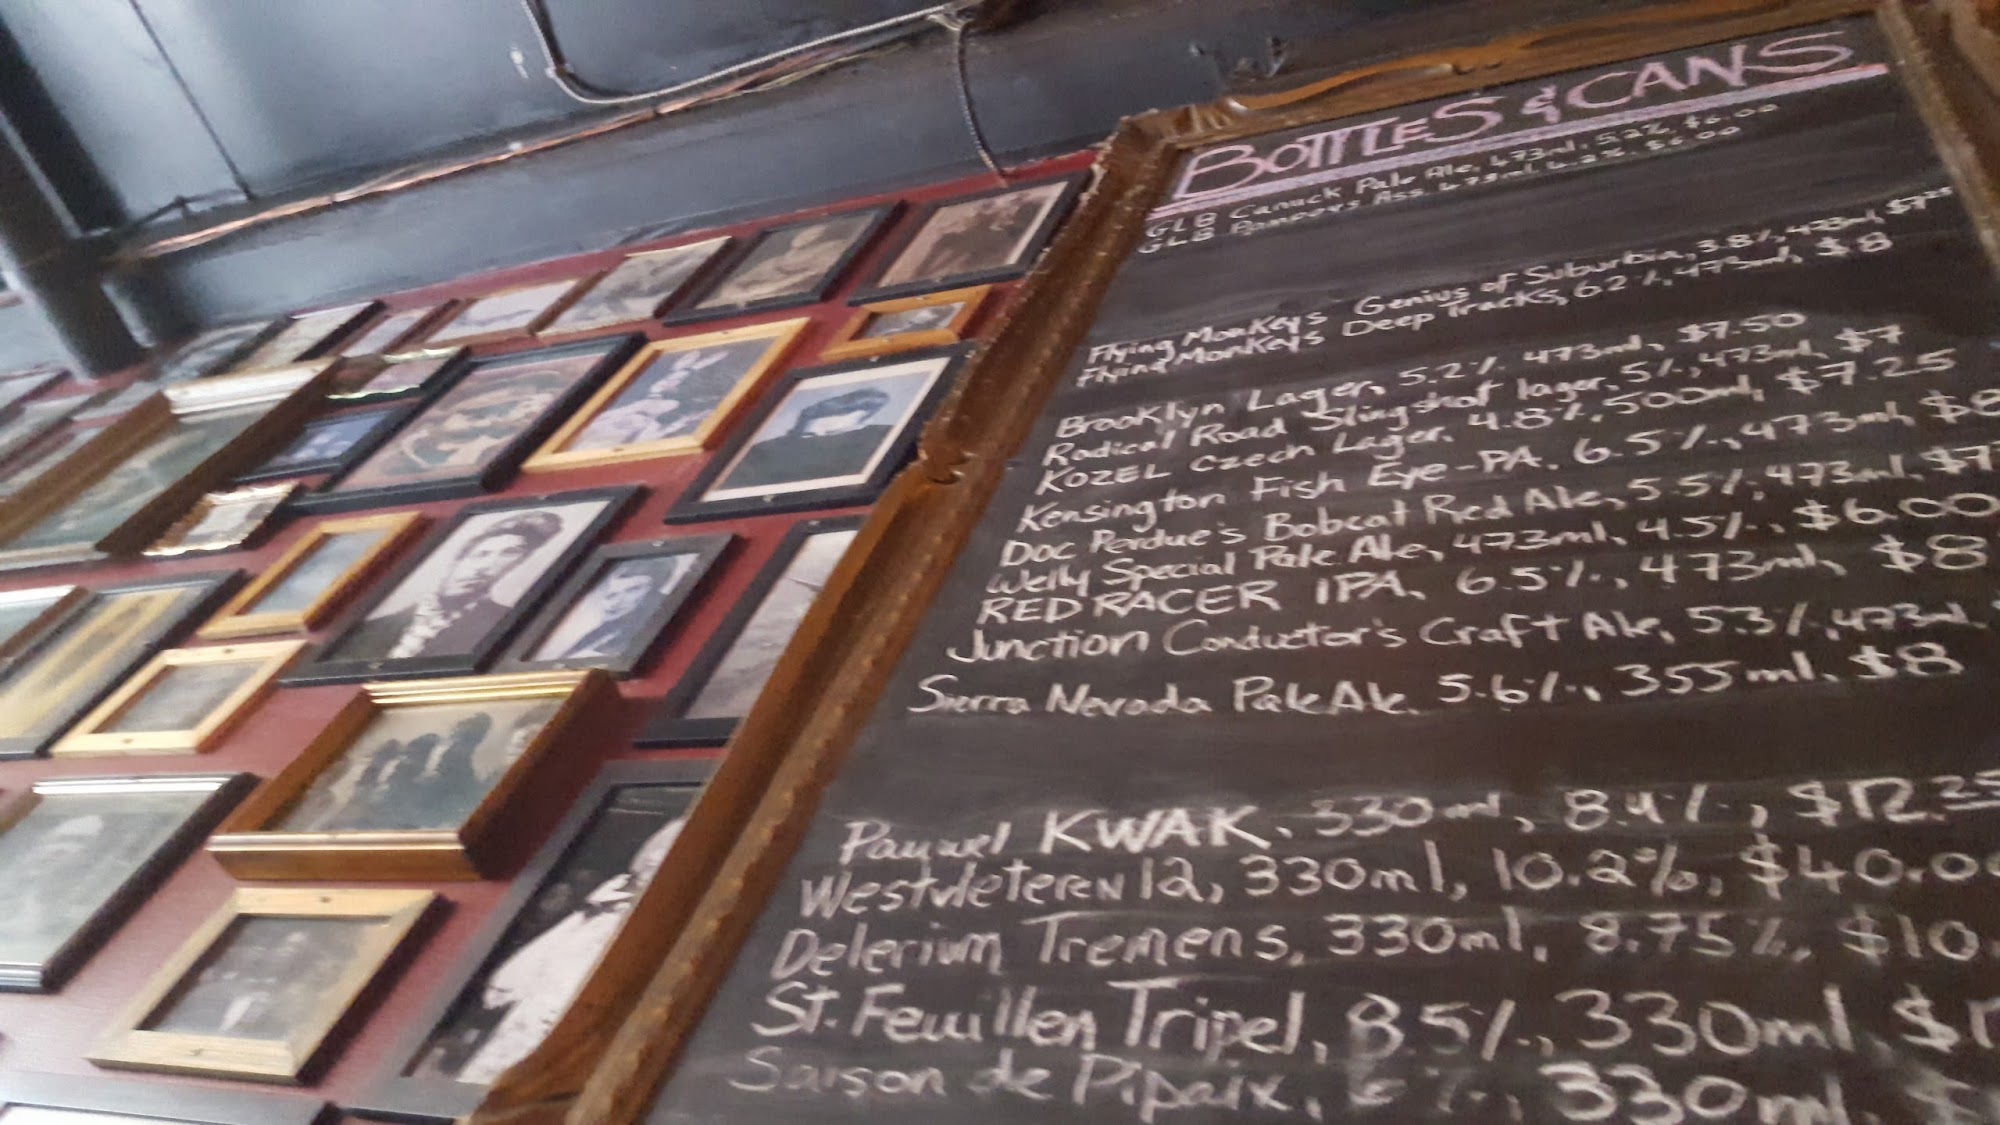 BOTTLES & CANS
GLB Canuck Pale Ale, 473ml, 5.2%, $6.00
GLB Pompous Ass. 473ml, 4.2%. $6.00
Flying Monkeys Genius of Suburbia, 3.8%, 473ml, $7.25
Flying Monkeys Deep Tracks, 6.2%, 473ml, $8
Brooklyn Lager, 5.2%. 473ml, $7.50
Radical Road Slingshot lager, 5%, 473ml, $7
KOZEL Czech Lager. 4.8%. 500ml, $7.25
Kensington Fish Eye-PA. 6.5%, 473ml, $8
Doc Perdue's Bobcat Red Ale, 5.5%, 473ml, $7
Welly Special Pale Ale, 473ml, 4.5%, $6.00
RED RACER IPA, 6.5%, 473ml, $8
Junction Conductor's Craft Ale, 5.3%, 473ml.
Sierra Nevada Pale Ale. 5.6%, 355ml, $8
Pauwel KWAK. 330ml, 8.4%, $12.25
Westvleteren 12, 330ml, 10.2%, $40.00
Delerium Tremens, 330ml, 8.75%, $10.
St. Feuillen Tripel, 8.5%, 330ml,
Saison de Pipaix, 6%, 330ml,